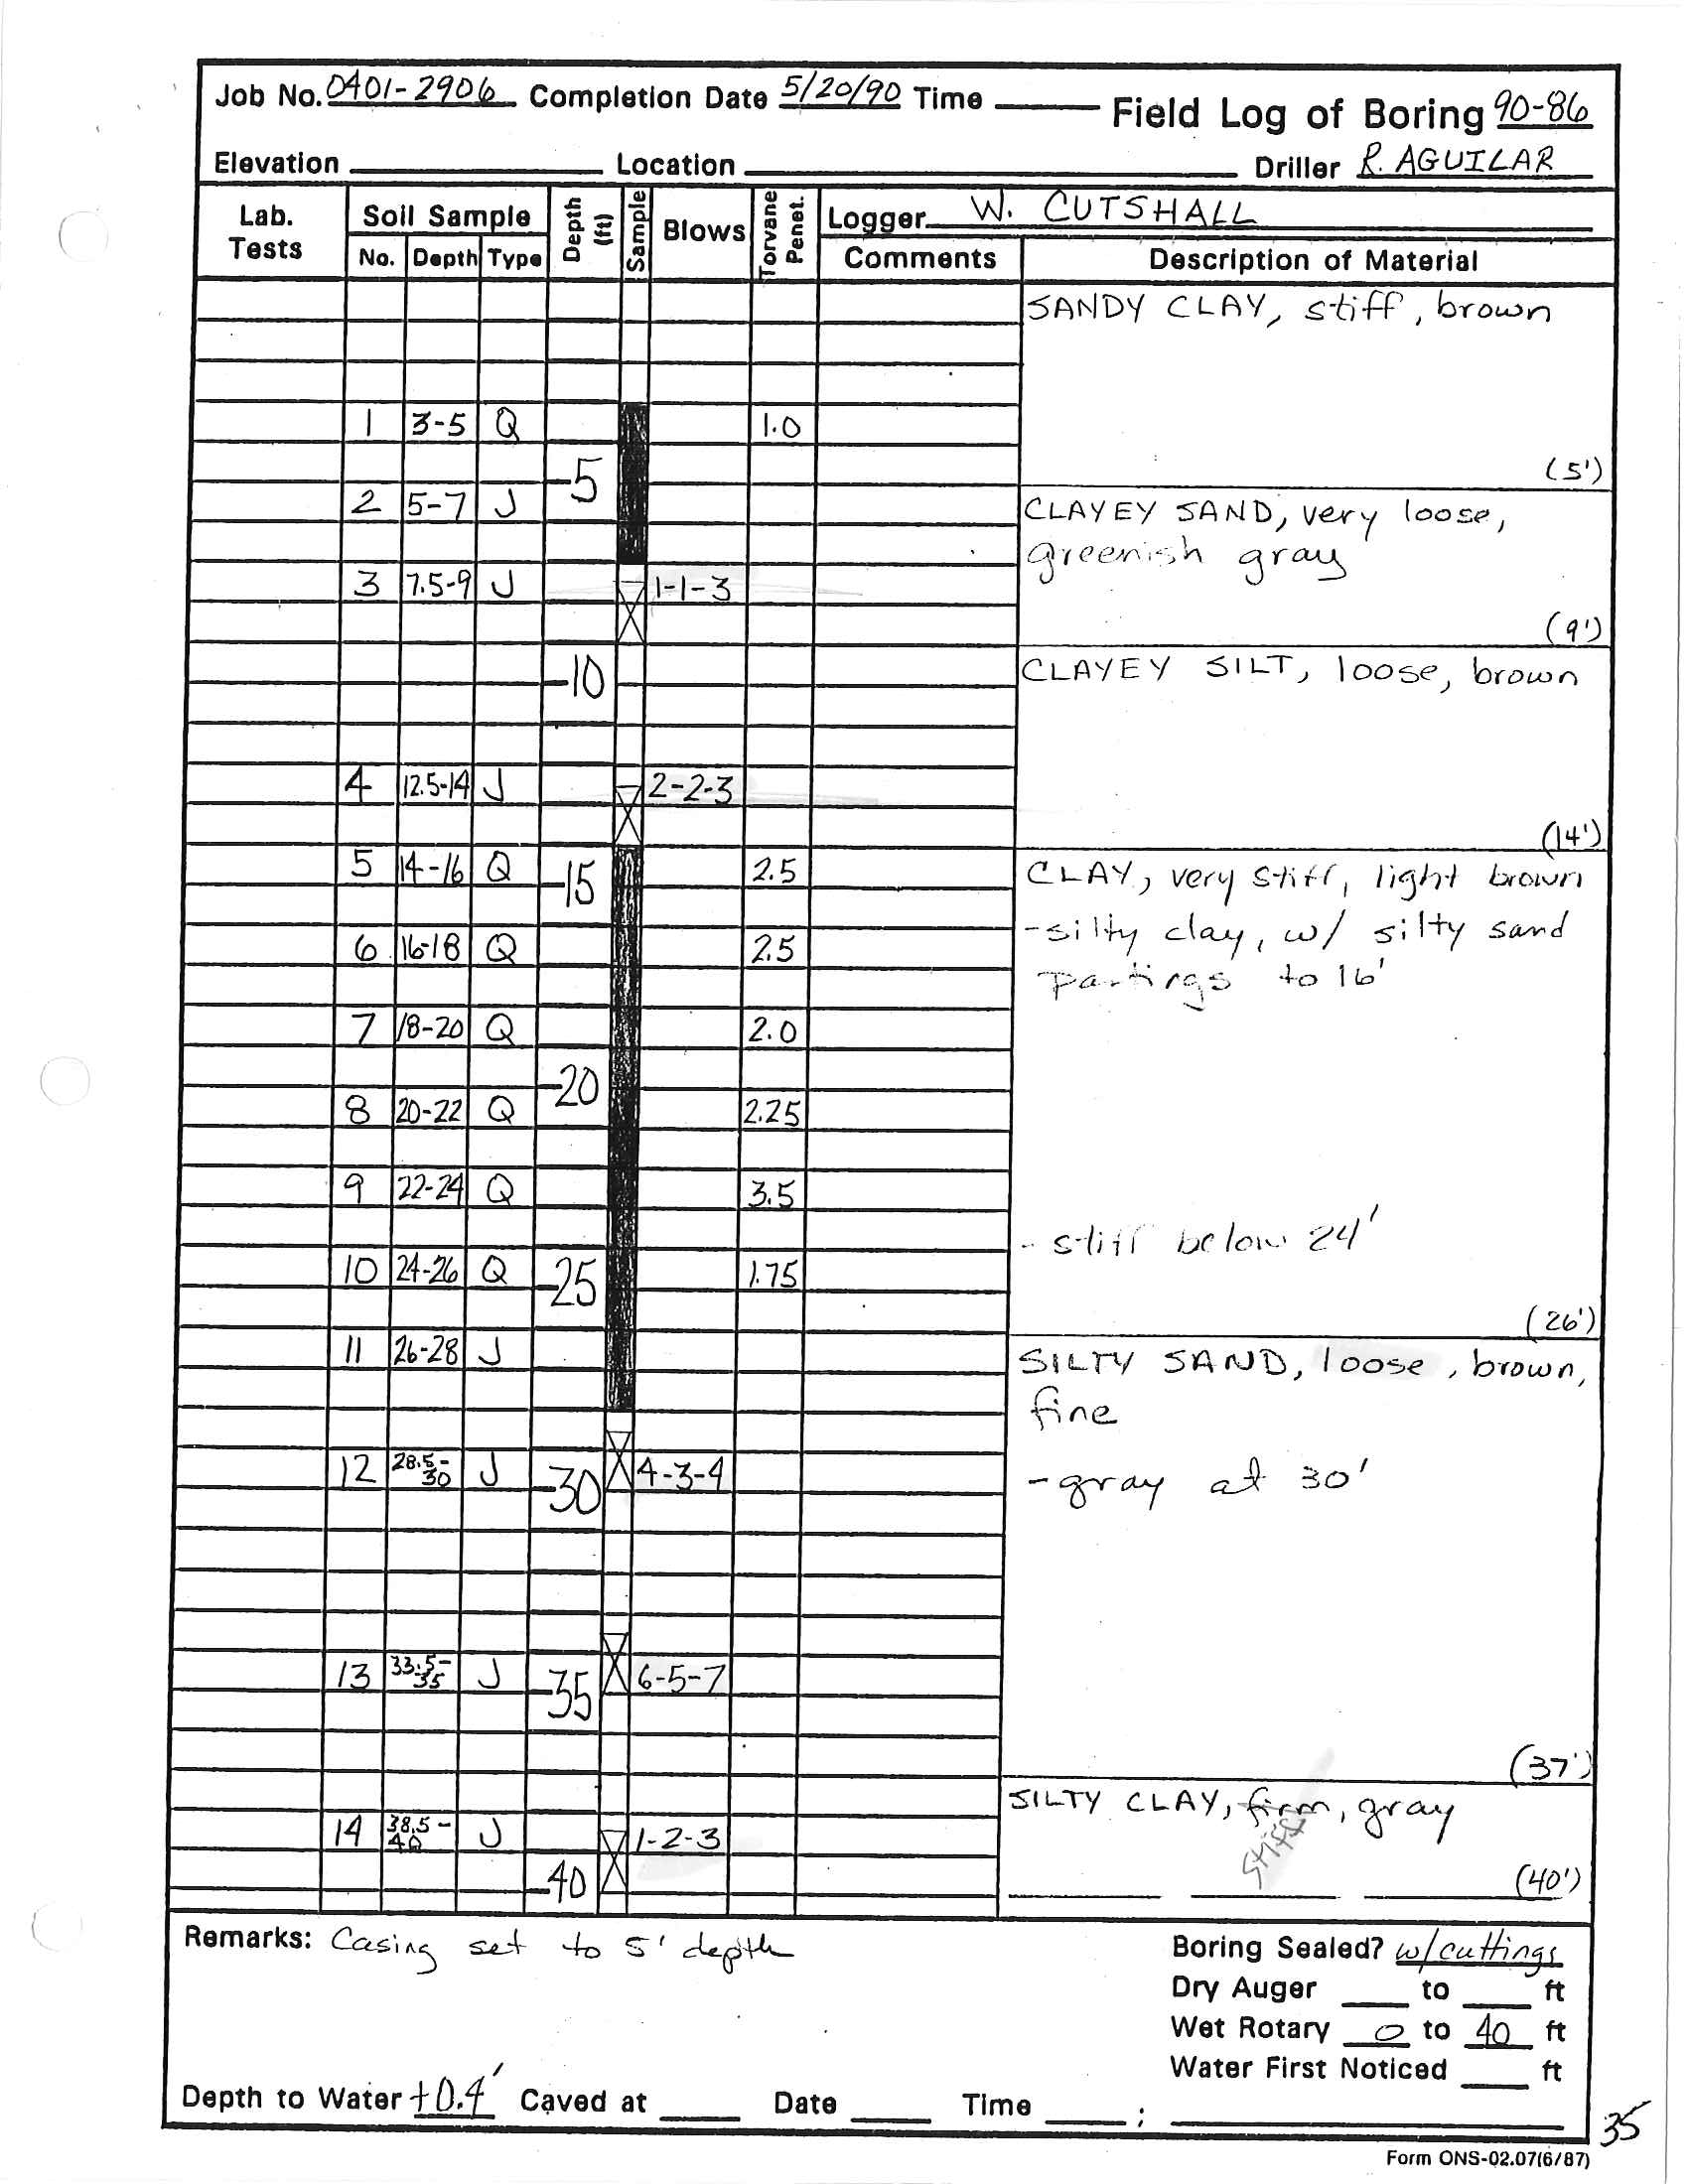 Job No. 0401-2906 Completion Date 5/20/90 Time Field Log of Boring 90-86
Elevation Location Driller R. AGUILAR
Lab. Tests Soil Sample Depth (ft) Sample Blows Torvane Penet. Logger W. CUTSHALL
No. Depth Type Comments Description of Material
SANDY CLAY, stiff, brown
1 3-5 Q 1.0
(5')
-5
2 5-7 J CLAYEY SAND, very loose,
greenish gray
3 7.5-9 J 1-1-3
(9')
-10 CLAYEY SILT, loose, brown
4 12.5-14 J 2-2-3
(14')
5 14-16 Q -15 2.5 CLAY, very stiff, light brown
6 16-18 Q 2.5 -silty clay, w/ silty sand
partings to 16'
7 18-20 Q 2.0
-20
8 20-22 Q 2.25
9 22-24 Q 3.5
- stiff below 24'
10 24-26 Q -25 1.75
(26')
11 26-28 J SILTY SAND, loose, brown,
fine
12 28.5-30 J -30 4-3-4 -gray at 30'
13 33.5-35 J -35 6-5-7
(37')
SILTY CLAY, firm, gray
stiff
14 38.5-40 J 1-2-3
-40 (40')
Remarks: Casing set to 5' depth
Boring Sealed? w/cuttings
Dry Auger to ft
Wet Rotary 0 to 40 ft
Water First Noticed ft
Depth to Water +0.4' Caved at Date Time ;
35
Form ONS-02.07(6/87)